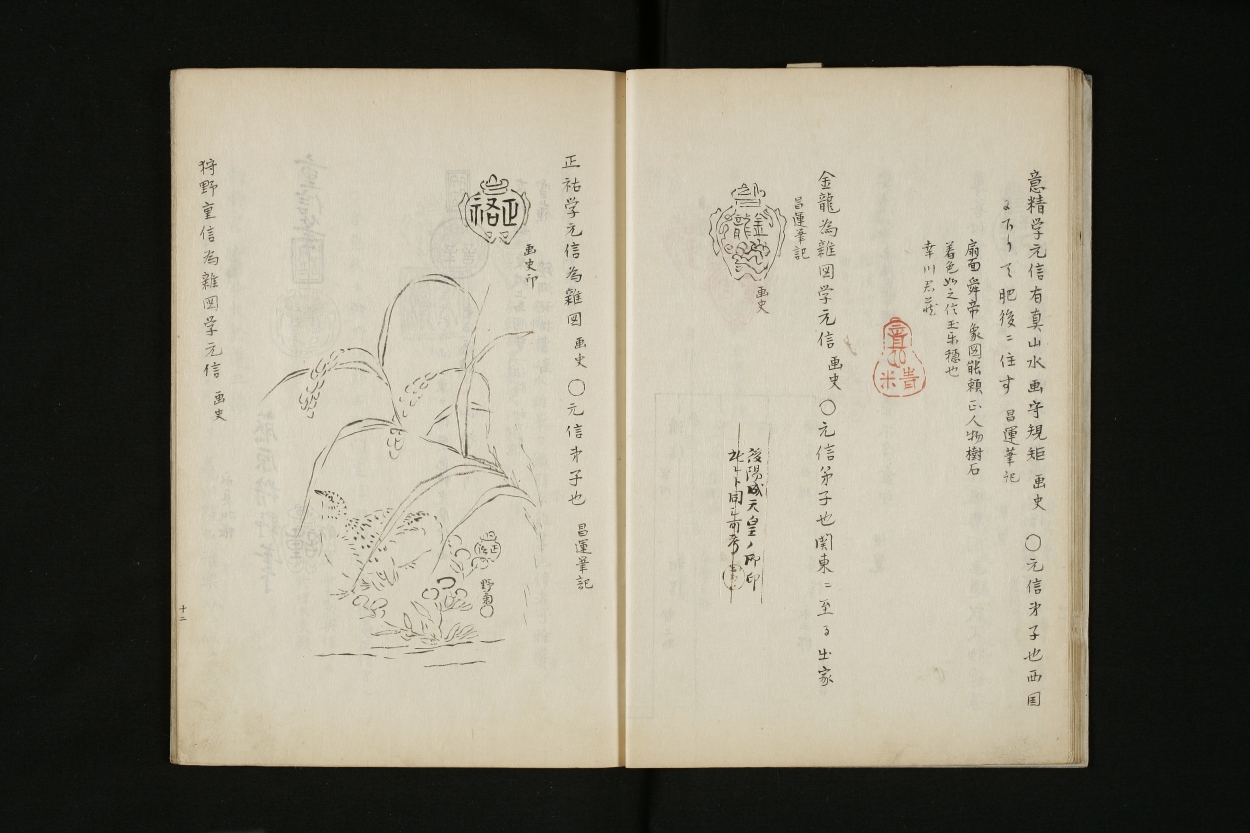 意精学元信有真山水画守規矩 画史 〇元信弟子也西国
ニ下リテ肥後ニ住す 昌運筆記
扇面舜帝象図 人物樹石
着色 也
幸川 蔵
意精
金龍為雑図学元信 画史 〇元信弟子也関東ニ至る出家
昌運筆記
金龍
画史
後陽成天皇ノ御印
正祐学元信為雑図 画史 〇元信弟子也 昌運筆記
画史印
正祐
正祐
野菊〇
狩野重信為雑図学元信 画史
十二